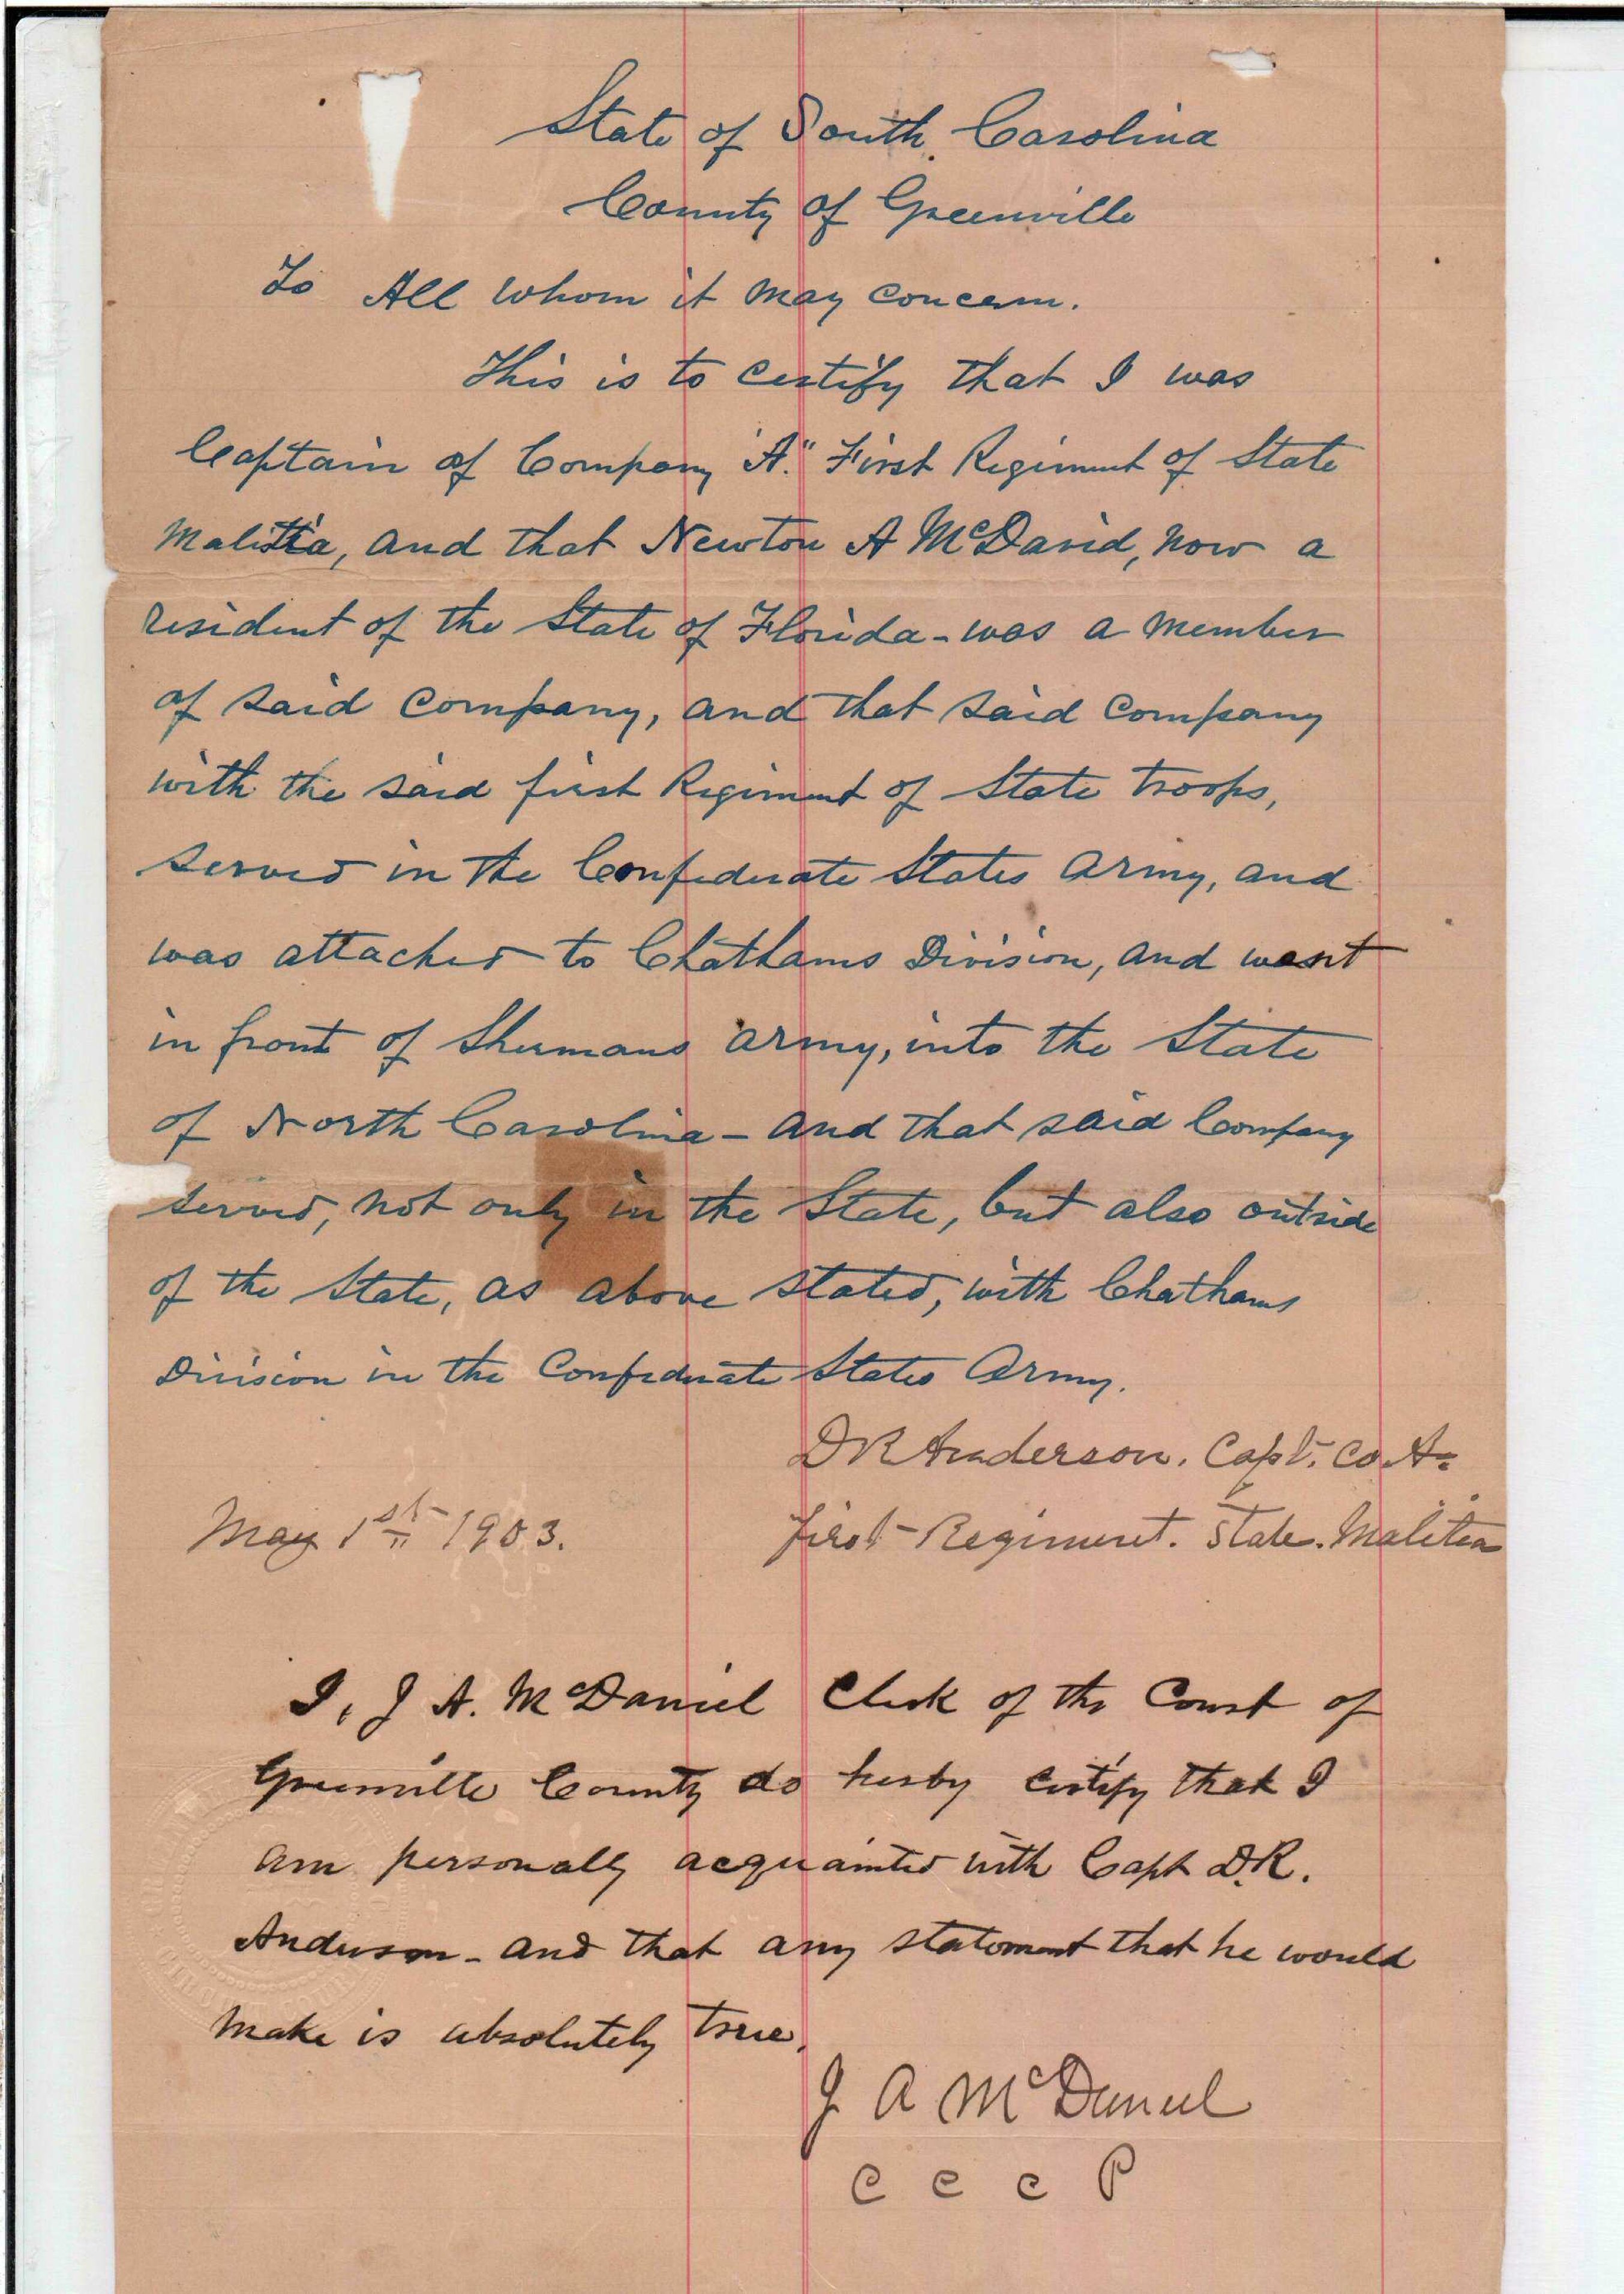 State of South Carolina
County of Greenville
To All whom it may concern.
This is to certify that I was
Captain of Company "A." First Regiment of State
Malitia, and that Newton A McDavid, now a
resident of the State of Florida - was a member
of said company, and that said company
with the said first Regiment of State troops,
served in the Confederate States Army, and
was attached to Chathams Division, and went
in front of Shermans army, into the State
of North Carolina - and that said Company
served, not only in the State, but also outside
of the State, as above stated, with Chathams
Division in the Confederate States Army.
D R Anderson. Capt. Co A.
May 1st 1903. First Regiment. State. Malitia
I, J A. McDaniel Clerk of the Court of
Greenville County do hereby certify that I
am personally acquainted with Capt D.R.
Anderson - and that any statement that he would
make is absolutely true.
J A McDaniel
C C C P